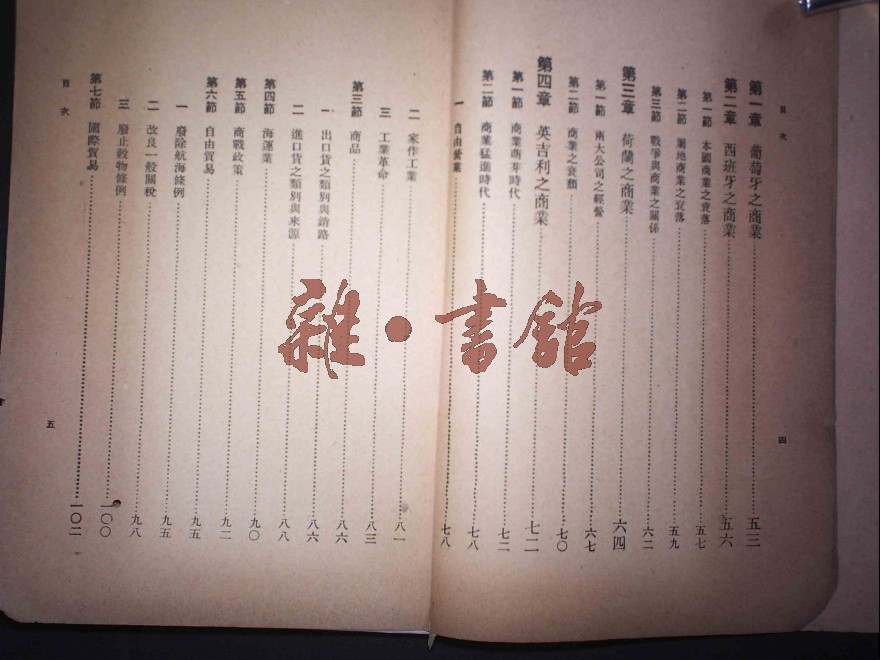 目次
第一章 葡萄牙之商業 五三
第二章 西班牙之商業 五六
第一節 本國商業之衰落 五七
第二節 屬地商業之衰落 五九
第三節 戰爭與商業之關係 六二
第三章 荷蘭之商業 六四
第一節 兩大公司之經營 六七
第二節 商業之衰頹 七〇
第四章 英吉利之商業 七二
第一節 商業萌芽時代 七二
第二節 商業猛進時代 七八
一 自由營業 七八
四
二 家作工業 八一
三 工業革命 八三
第三節 商品 八六
一 出口貨之類別與銷路 八六
二 進口貨之類別與來源 八八
第四節 海運業 九〇
第五節 商戰政策 九二
第六節 自由貿易 九五
一 廢除航海條例 九五
二 改良一般關稅 九八
三 廢止穀物條例 一〇〇
第七節 國際貿易 一〇二
目次
五
雜·書館